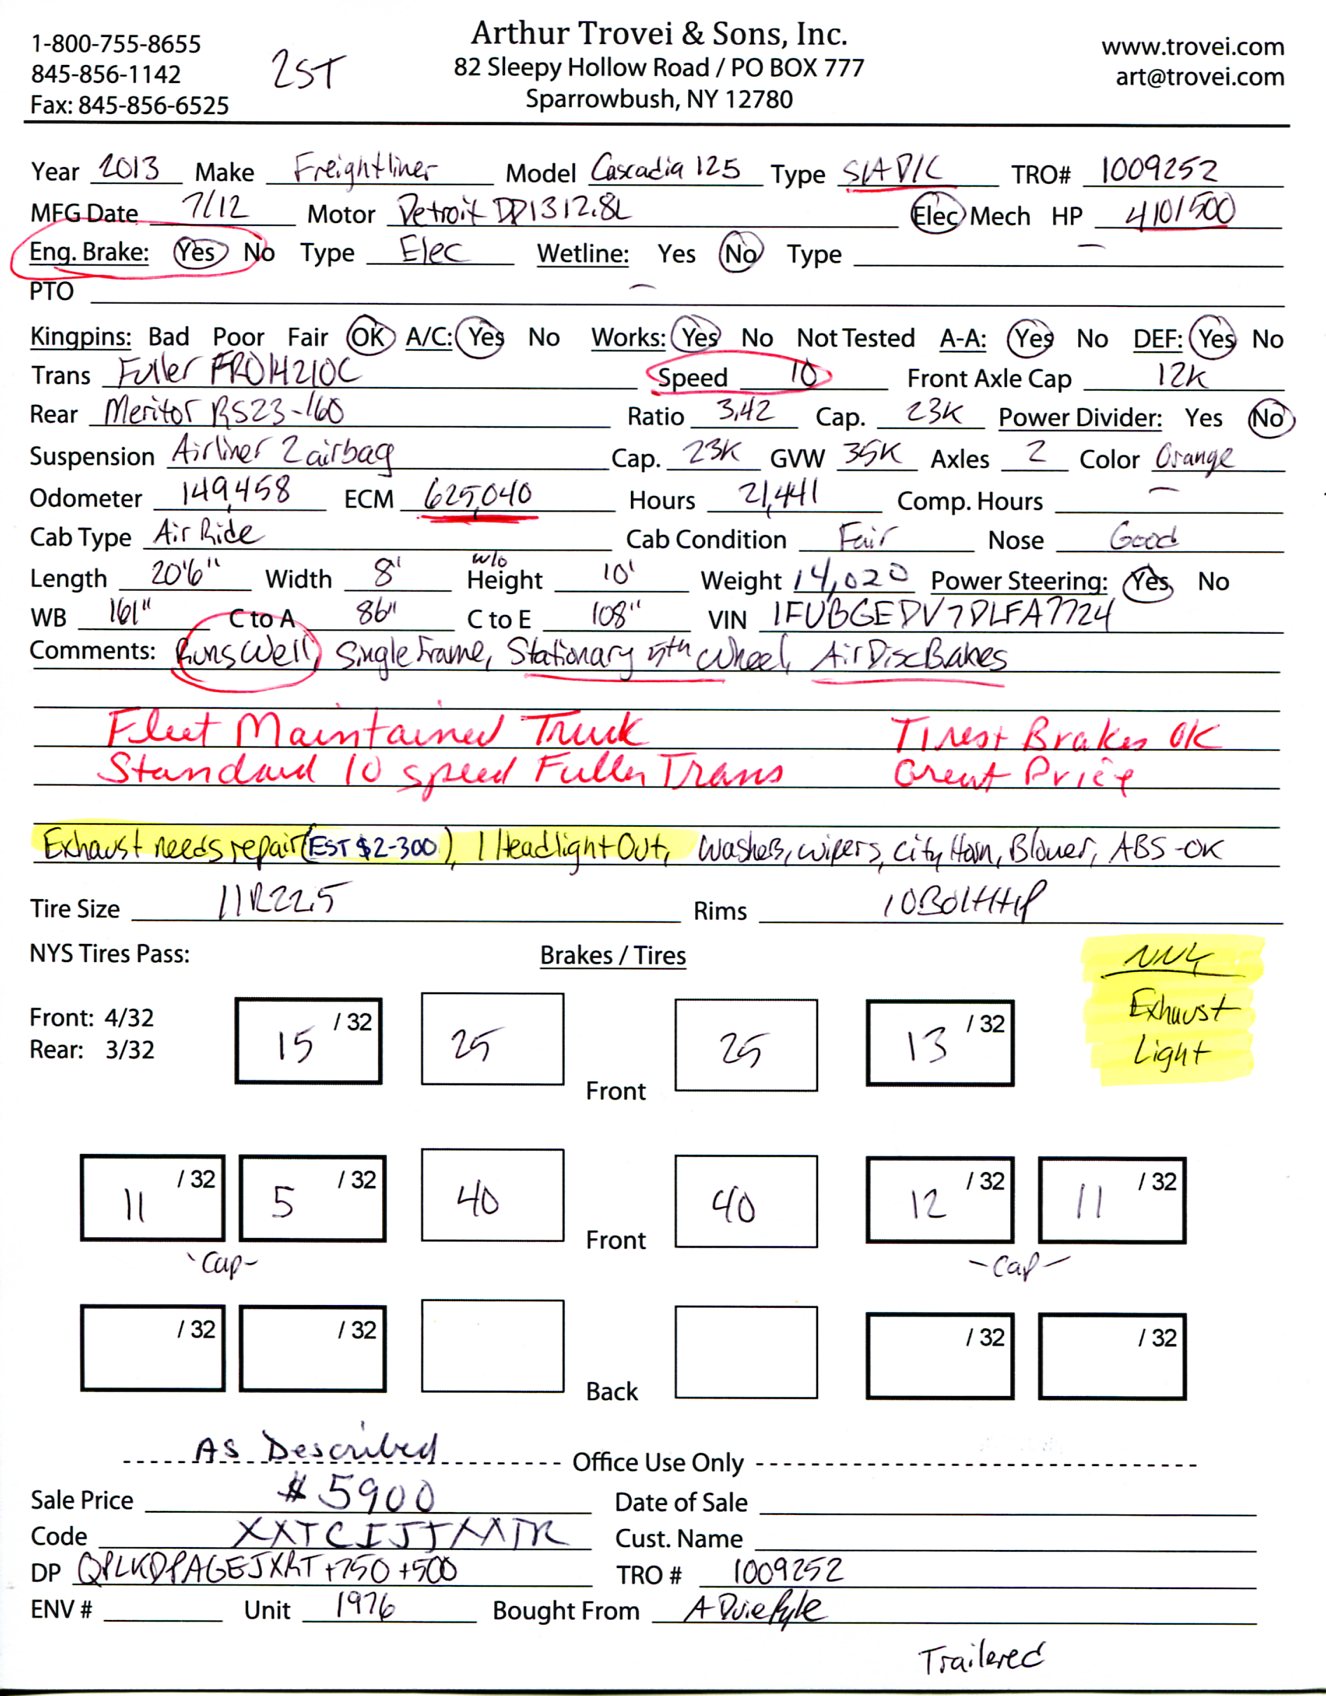 1-800-755-8655
845-856-1142
Fax: 845-856-6525
2ST
Arthur Trovei & Sons, Inc.
82 Sleepy Hollow Road / PO BOX 777
Sparrowbush, NY 12780
www.trovei.com
art@trovei.com
Year 2013 Make Freightliner Model Cascadia 125 Type S/A D/C TRO# 1009252
MFG Date 7/12 Motor Detroit DD13 12.8L Elec Mech HP 410/500
Eng. Brake: Yes No Type Elec Wetline: Yes No Type —
PTO —
Kingpins: Bad Poor Fair OK A/C: Yes No Works: Yes No Not Tested A-A: Yes No DEF: Yes No
Trans Fuller FRO14210C Speed 10 Front Axle Cap 12K
Rear Meritor RS23-160 Ratio 3.42 Cap. 23K Power Divider: Yes No
Suspension Airliner 2 airbag Cap. 23K GVW 35K Axles 2 Color Orange
Odometer 149,458 ECM 625,040 Hours 21,441 Comp. Hours —
Cab Type Air Ride Cab Condition Fair Nose Good
Length 20'6" Width 8' w/o Height 10' Weight 14,020 Power Steering: Yes No
WB 161" C to A 86" C to E 108" VIN 1FUBGEDV7DLFA7724
Comments: Runs Well, Single Frame, Stationary 5th Wheel, Air Disc Bakes
Fleet Maintained Truck Tires + Brakes OK
Standard 10 speed Fuller Trans Great Price
Exhaust needs repair (EST $2-300), 1 Headlight Out, Washers, wipers, city Horn, Blower, ABS-OK
Tire Size 11R22.5 Rims 10 Bolt HP
NYS Tires Pass: Brakes / Tires
NNY
Exhaust
Light
Front: 4/32
Rear: 3/32
15 /32 25 Front 25 13 /32
11 /32 5 /32 40 Front 40 12 /32 11 /32
-Cap- -Cap-
/32 /32 Back /32 /32
As Described Office Use Only
Sale Price $5900 Date of Sale
Code XXTCIJJXXTR Cust. Name
DP QPLKDPAGEJXRT +750 +500 TRO # 1009252
ENV # Unit 1976 Bought From A Duie Pyle
Trailered